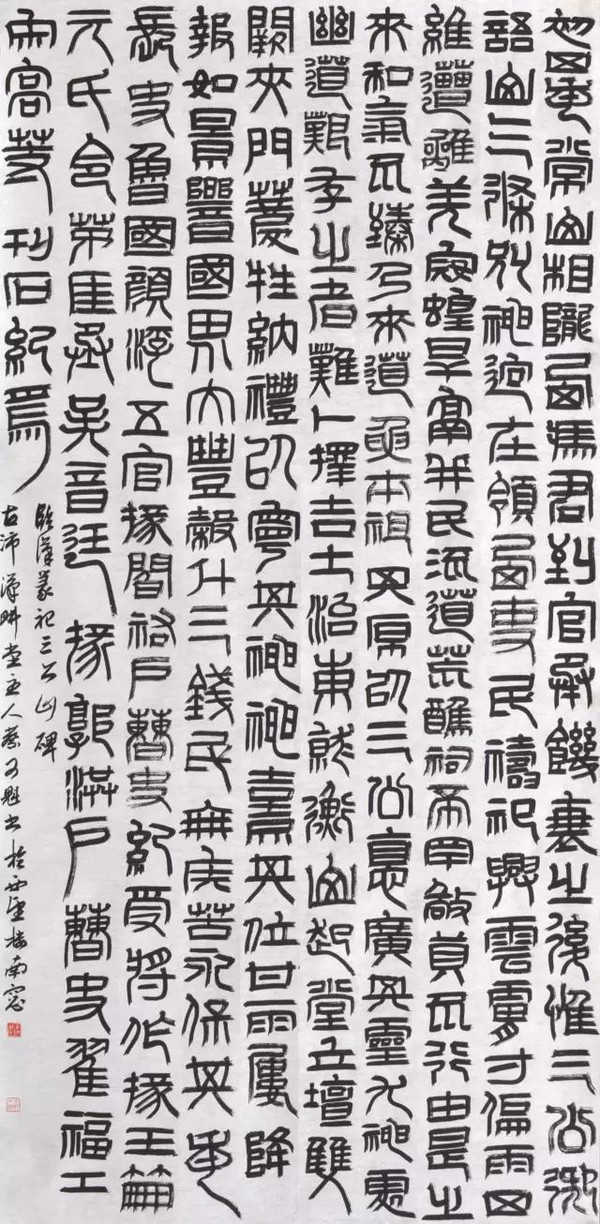 初四年常山相隴西馮君到官承饑衰之後惟三公御
語山三條別神迥在領西吏民禱祀興雲膚寸偏雨四
維遭離羌寇蝗旱鬲并民流道荒醮祠希罕敬奠不行由是之
來和氣不臻乃來道要本祖其原以三公德廣其靈尤神處
幽道艱存之者難卜擇吉土治東就衡山起堂立壇雙
闕夾門薦牲納禮以寧其神神熹其位甘雨屢降
報如景響國界大豐穀斗三錢民無疾苦永保其年
長史魯國顏浮五官掾閻祐戶曹史紀受將作掾王笧
元氏令茅匡丞吳音廷掾郭洪戶曹史翟福工
宋高等刊石紀焉
臨漢篆祀三公山碑
古沛漢畊堂主人可魁書於西望樓南窗